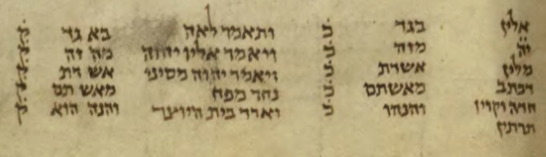 אלין בגד כ ותאמר לאה בא גד ק
יה מזה כ ויאמר אליו יהוה מה זה ק
מלין אשדת כ ויאמר יהוה מסיני אש דת ק
דכתב מאשתם כ נחר מפח מאש תם ק
חדה וקרין והנהו כ וארד בית היוצר והנה הוא ק
תרתין